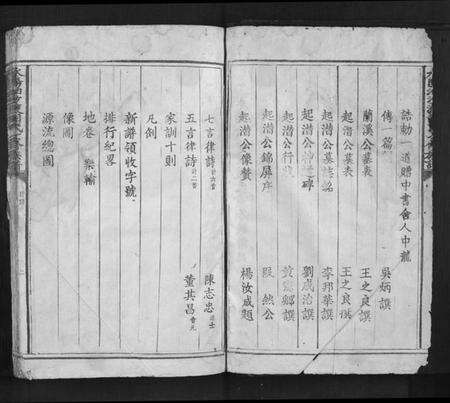 誥勅一道贈中書舍人中龍
傳一篇 吳炳譔
蘭溪公墓表 王之良譔
起潛公墓表 王之良譔
起潛公墓誌銘 李邦華譔
起潛公神道碑 劉咸治譔
起潛公行狀
起潛公錦屏序 殷然公
起潛公像贊 楊汝成題
七言律詩計六首 陳志忠進士
五言律詩計二首 董其昌會元
家訓十則
凡例
新譜領收字號
排行紀畧
地卷 樂輸
像圖
源流總圖